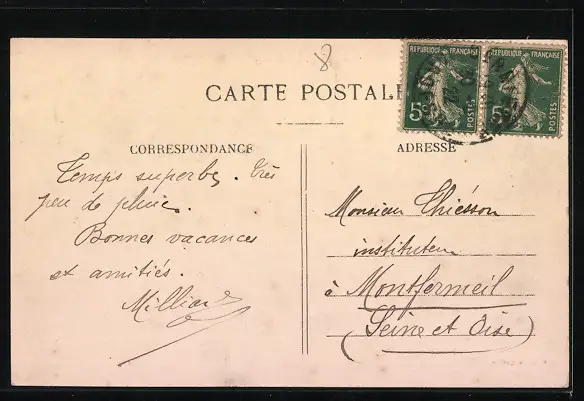 8
REPUBLIQUE FRANÇAISE REPUBLIQUE FRANÇAISE
5c POSTES 5c POSTES
CARTE POSTALE
CORRESPONDANCE
Temps superbe. Très
peu de pluie.
Bonnes vacances
et amitiés.
Milliaud
ADRESSE
Monsieur Thiésson
instituteur
à Montfermeil
(Seine et Oise)